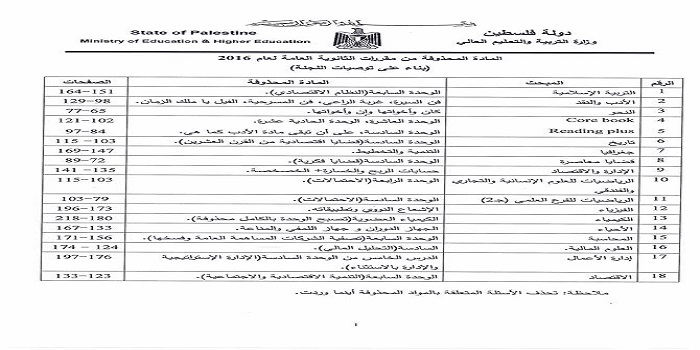 State of Palestine دولة فلسطين
Ministry of Education & Higher Education وزارة التربية والتعليم العالي
المادة المحذوفة من مقررات الثانوية العامة لعام 2016
(بناء على توصيات اللجنة)
الرقم المبحث المادة المحذوفة الصفحات
1 التربية الإسلامية الوحدة السابعة(النظام الاقتصادي). 151–164
2 الأدب والنقد فن السيرة، غربة الراعي، فن المسرحية، الفيل يا ملك الزمان. 98–129
3 النحو كان وأخواتها وإن وأخواتها. 65–77
4 Core book الوحدة العاشرة، الوحدة الحادية عشرة. 102–121
5 Reading plus الوحدة السادسة، على أن تبقى مادة الأدب كما هي. 84–97
6 تاريخ الوحدة السادسة(قضايا اقتصادية من القرن العشرين). 103–115
7 جغرافيا التنمية والتخطيط. 147–169
8 قضايا معاصرة الوحدة السادسة(قضايا فكرية). 72–89
9 الإدارة والاقتصاد حسابات الربح والخسارة+ الخصخصة. 135– 141
10 الرياضيات للعلوم الإنسانية والتجاري والفندقي الوحدة الرابعة(الاحتمالات). 103–115
11 الرياضيات للفرع العلمي (ج2) الوحدة السادسة(الاحتمالات). 79–103
12 الفيزياء الإشعاع النووي وتطبيقاته. 173–196
13 الكيمياء الكيمياء العضوية(تصبح الوحدة بالكامل محذوفة). 180–218
14 الأحياء الجهاز الدوران و جهاز اللمفي والمناعة. 133–167
15 المحاسبة الوحدة السابعة(تصفية الشركات المساهمة العامة وفسخها). 156–171
16 العلوم المالية. السادسة(التحليل المالي). 124 – 174
17 إدارة الأعمال الدرس الخامس من الوحدة السادسة(الإدارة الإستراتيجية والإدارة بالاستثناء). 176–197
18 الاقتصاد الوحدة السابعة(التنمية الاقتصادية والاجتماعية). 123–133
ملاحظة: تحذف الأسئلة المتعلقة بالمواد المحذوفة أينما وردت.